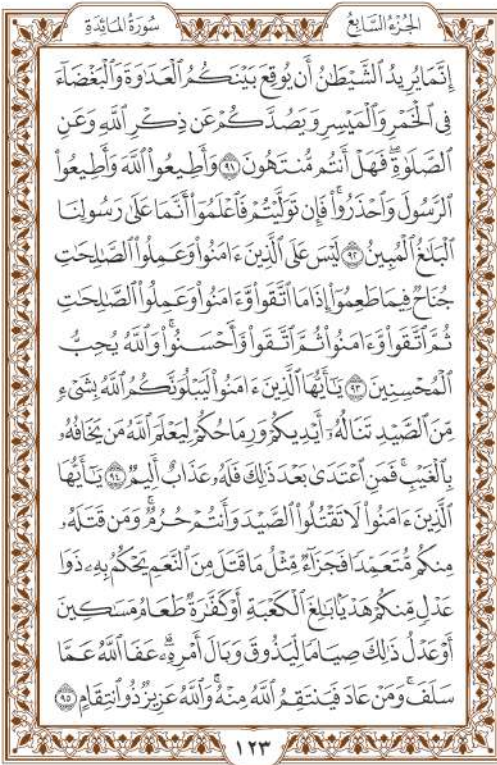 الجُزْءُ السَّابِعُ سُورَةُ المَائِدَةِ
إِنَّمَا يُرِيدُ ٱلشَّيْطَٰنُ أَن يُوقِعَ بَيْنَكُمُ ٱلْعَدَٰوَةَ وَٱلْبَغْضَآءَ
فِي ٱلْخَمْرِ وَٱلْمَيْسِرِ وَيَصُدَّكُمْ عَن ذِكْرِ ٱللَّهِ وَعَنِ
ٱلصَّلَوٰةِۖ فَهَلْ أَنتُم مُّنتَهُونَ ٩١ وَأَطِيعُوا۟ ٱللَّهَ وَأَطِيعُوا۟
ٱلرَّسُولَ وَٱحْذَرُوا۟ۚ فَإِن تَوَلَّيْتُمْ فَٱعْلَمُوٓا۟ أَنَّمَا عَلَىٰ رَسُولِنَا
ٱلْبَلَٰغُ ٱلْمُبِينُ ٩٢ لَيْسَ عَلَى ٱلَّذِينَ ءَامَنُوا۟ وَعَمِلُوا۟ ٱلصَّٰلِحَٰتِ
جُنَاحٌ فِيمَا طَعِمُوٓا۟ إِذَا مَا ٱتَّقَوا۟ وَّءَامَنُوا۟ وَعَمِلُوا۟ ٱلصَّٰلِحَٰتِ
ثُمَّ ٱتَّقَوا۟ وَّءَامَنُوا۟ ثُمَّ ٱتَّقَوا۟ وَّأَحْسَنُوا۟ۗ وَٱللَّهُ يُحِبُّ
ٱلْمُحْسِنِينَ ٩٣ يَٰٓأَيُّهَا ٱلَّذِينَ ءَامَنُوا۟ لَيَبْلُوَنَّكُمُ ٱللَّهُ بِشَيْءٍ
مِّنَ ٱلصَّيْدِ تَنَالُهُۥٓ أَيْدِيكُمْ وَرِمَاحُكُمْ لِيَعْلَمَ ٱللَّهُ مَن يَخَافُهُۥ
بِٱلْغَيْبِۚ فَمَنِ ٱعْتَدَىٰ بَعْدَ ذَٰلِكَ فَلَهُۥ عَذَابٌ أَلِيمٌ ٩٤ يَٰٓأَيُّهَا
ٱلَّذِينَ ءَامَنُوا۟ لَا تَقْتُلُوا۟ ٱلصَّيْدَ وَأَنتُمْ حُرُمٌۚ وَمَن قَتَلَهُۥ
مِنكُم مُّتَعَمِّدًا فَجَزَآءٌ مِّثْلُ مَا قَتَلَ مِنَ ٱلنَّعَمِ يَحْكُمُ بِهِۦ ذَوَا
عَدْلٍ مِّنكُمْ هَدْيًۢا بَٰلِغَ ٱلْكَعْبَةِ أَوْ كَفَّٰرَةٌ طَعَامُ مَسَٰكِينَ
أَوْ عَدْلُ ذَٰلِكَ صِيَامًا لِّيَذُوقَ وَبَالَ أَمْرِهِۦۗ عَفَا ٱللَّهُ عَمَّا
سَلَفَۚ وَمَنْ عَادَ فَيَنتَقِمُ ٱللَّهُ مِنْهُۚ وَٱللَّهُ عَزِيزٌ ذُو ٱنتِقَامٍ ٩٥
١٢٣